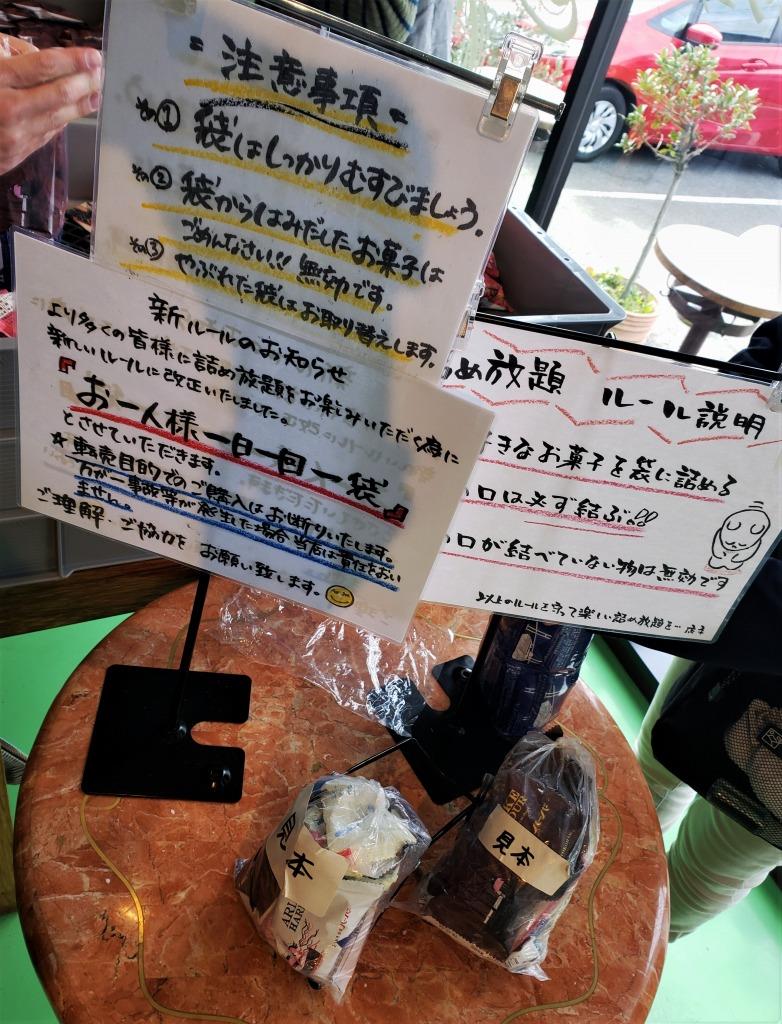 = 注意事項 =
その① 袋はしっかりむすびましょう。
その② 袋からはみだしたお菓子は
ごめんなさい!! 無効です。
その③ やぶれた袋はお取り替えします。
新ルールのお知らせ
より多くの皆様に詰め放題をお楽しみいただく為に
新しいルールに改正いたしました。
『お一人様一日一回一袋』
とさせていただきます。
☆転売目的でのご購入はお断りいたします。
万が一事故等が発生した場合当店は責任をおい
ません。
ご理解・ご協力をお願い致します。
め放題 ルール説明
きなお菓子を袋に詰める
口は必ず結ぶ!!
口が結べていない物は無効です
以上のルールを守って楽しい詰め放題を… 店主
見本
見本